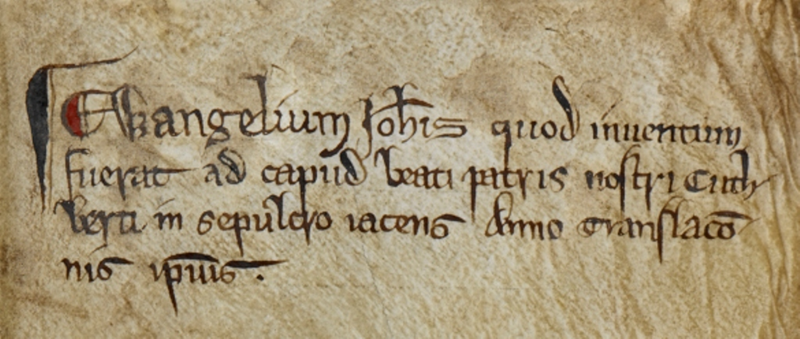 ¶ Evangelium Joh̅is quod inuentum
fuerat ad capud beati patris nostri Cuth
berti in sepulcro iacens Anno translaco̅
nis ip̅ius .